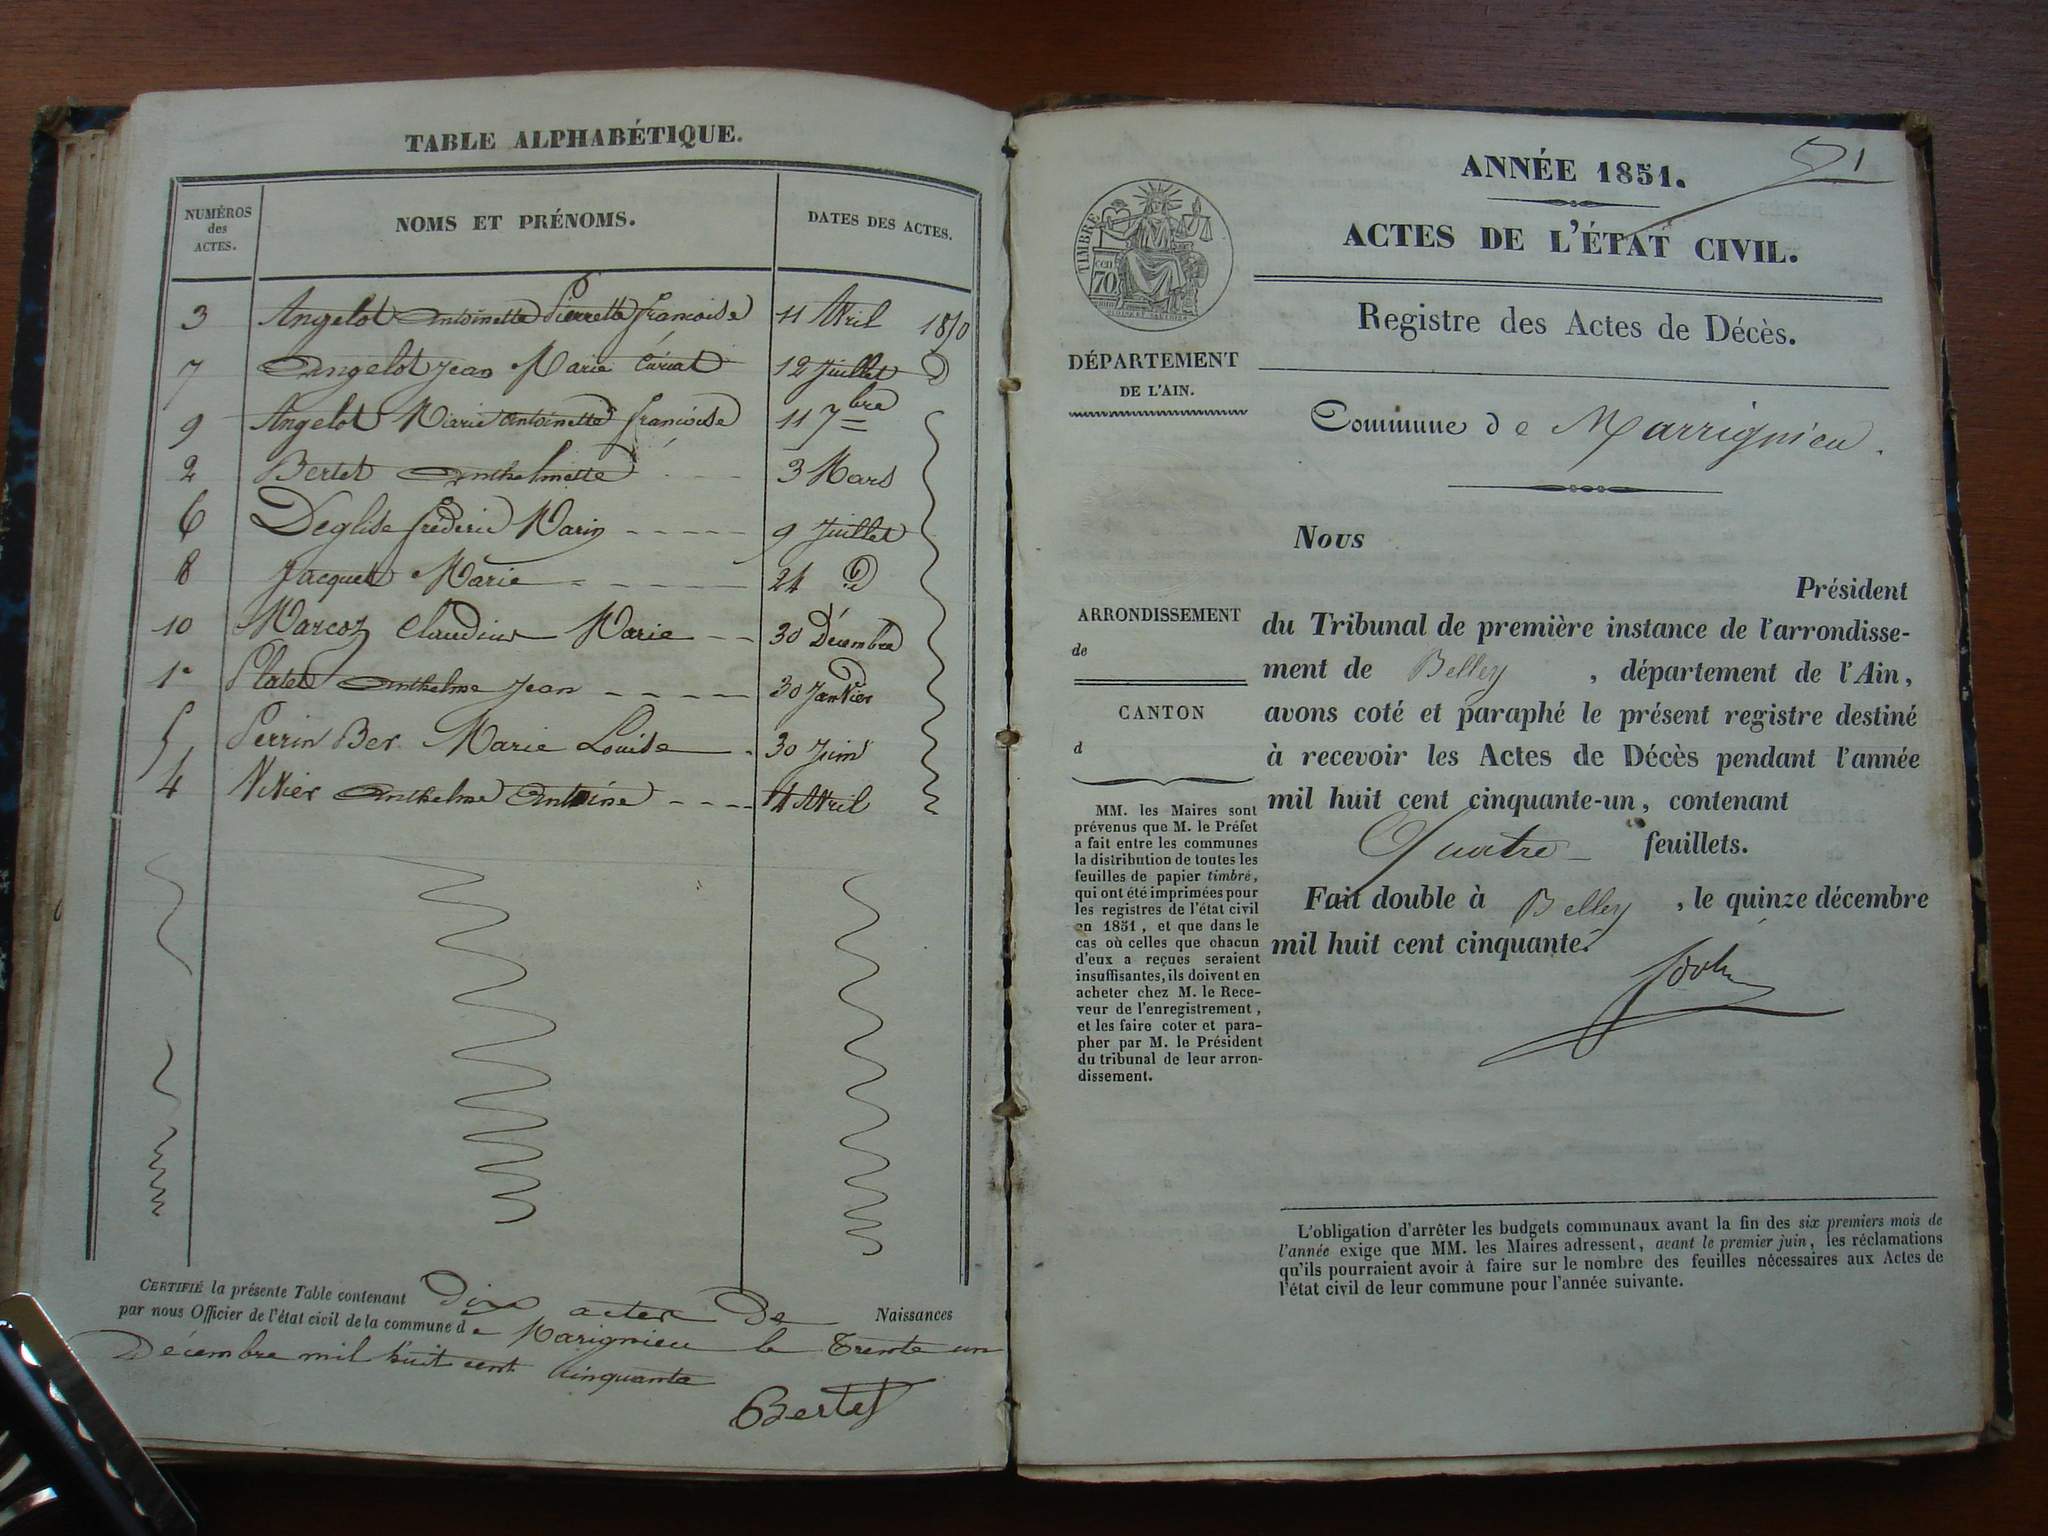 TABLE ALPHABÉTIQUE.
NUMÉROS des ACTES. NOMS ET PRÉNOMS. DATES DES ACTES.
3 Angelot Antoinette Pierrette françoise 11 Avril 1850
7 Angelot Jean Marie 12 Juillet d
9 Angelot Marie Antoinette françoise 11 7bre
2 Bertet Anthelmette 3 Mars
6 Deglise fréderic Marin 9 Juillet
8 Jacquet Marie 24 d
10 Marcoz Claudius Marie 30 Décembre
1er Platet Anthelme Jean 30 Janvier
5 Perrin Ber Marie Louise 30 Juin
4 Vivier Anthelme Antoine 4 Avril
CERTIFIÉ la présente Table contenant Dix actes De Naissances
par nous Officier de l'état civil de la commune de Marignieu le Trente un
Décembre mil huit cent cinquante
Bertet
1
ANNÉE 1851.
ACTES DE L'ÉTAT CIVIL.
TIMBRE
70
Registre des Actes de Décès.
DÉPARTEMENT
DE L'AIN.
Commune de Marrignieu.
Nous
Président
du Tribunal de première instance de l'arrondisse-
ment de Belley, département de l'Ain,
avons coté et paraphé le présent registre destiné
à recevoir les Actes de Décès pendant l'année
mil huit cent cinquante-un, contenant
Quatre feuillets.
Fait double à Belley, le quinze décembre
mil huit cent cinquante.
ARRONDISSEMENT
de
CANTON
d
MM. les Maires sont
prévenus que M. le Préfet
a fait entre les communes
la distribution de toutes les
feuilles de papier timbré,
qui ont été imprimées pour
les registres de l'état civil
en 1851, et que dans le
cas où celles que chacun
d'eux a reçues seraient
insuffisantes, ils doivent en
acheter chez M. le Rece-
veur de l'enregistrement,
et les faire coter et para-
pher par M. le Président
du tribunal de leur arron-
dissement.
L'obligation d'arrêter les budgets communaux avant la fin des six premiers mois de
l'année exige que MM. les Maires adressent, avant le premier juin, les réclamations
qu'ils pourraient avoir à faire sur le nombre des feuilles nécessaires aux Actes de
l'état civil de leur commune pour l'année suivante.